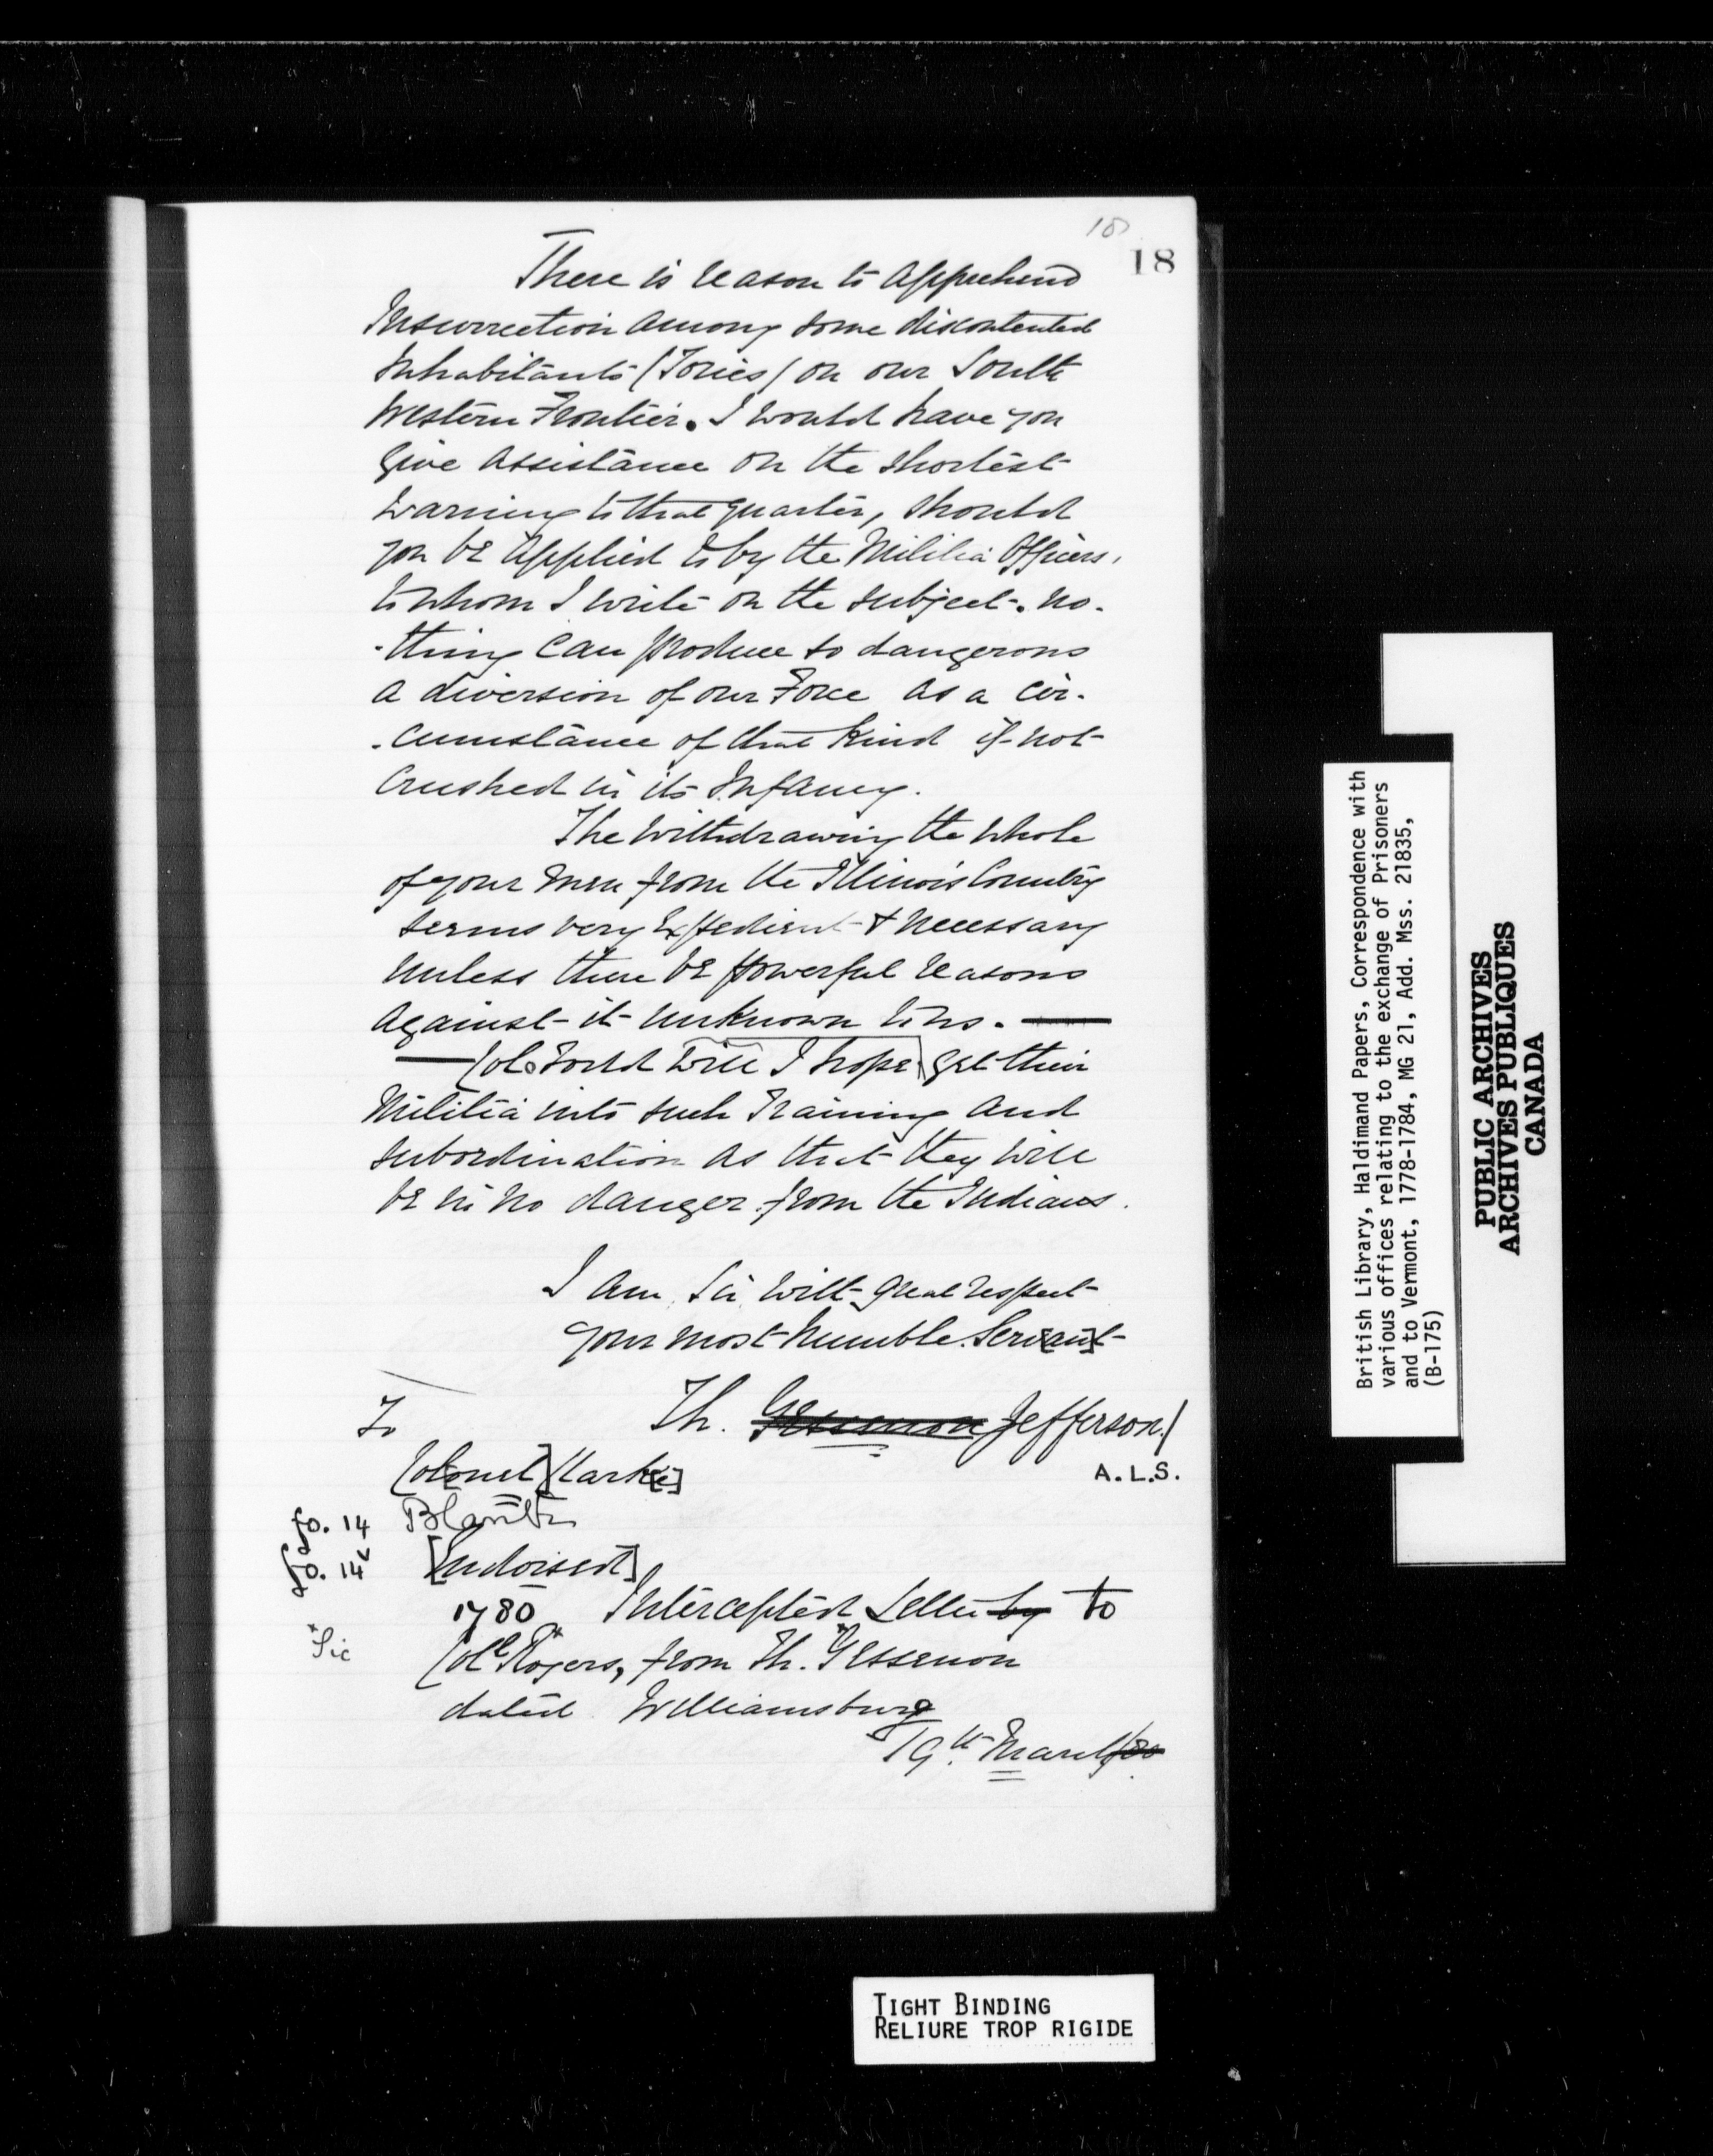 18
18
There is reason to apprehend
Insurrection among some discontented
Inhabitants (Tories) on our South
Western Frontier. I would have you
give assistance on the shortest
warning to that quarter, should
you be applied to by the Militia Officers,
to whom I write on the subject. no-
-thing can produce so dangerous
a diversion of our Force as a cir-
-cumstance of that kind if not
crushed in its Infancy.
The withdrawing the whole
of your men from the Illinois Country
seems very Expedient & necessary
unless there be powerful reasons
against it unknown to us. —
— Colo Todd will I hope get their
Militia into such Training and
subordination as that they will
be in no danger from the Indians.
I am, Sir, with great respect
your most humble Serv[an]t
Th. Gessenon Jefferson/
A.L.S.
To
Col[onel] Clark[e]
fo. 14 Blank
fo. 14v [Endorsed]
1780 Intercepted Letter by to
*Sic Coll Rogers,* from Th. *Gessenon
dated Williamsburg
19th March/80
British Library, Haldimand Papers, Correspondence with
various offices relating to the exchange of Prisoners
and to Vermont, 1778-1784, MG 21, Add. Mss. 21835,
(B-175)
PUBLIC ARCHIVES
ARCHIVES PUBLIQUES
CANADA
TIGHT BINDING
RELIURE TROP RIGIDE